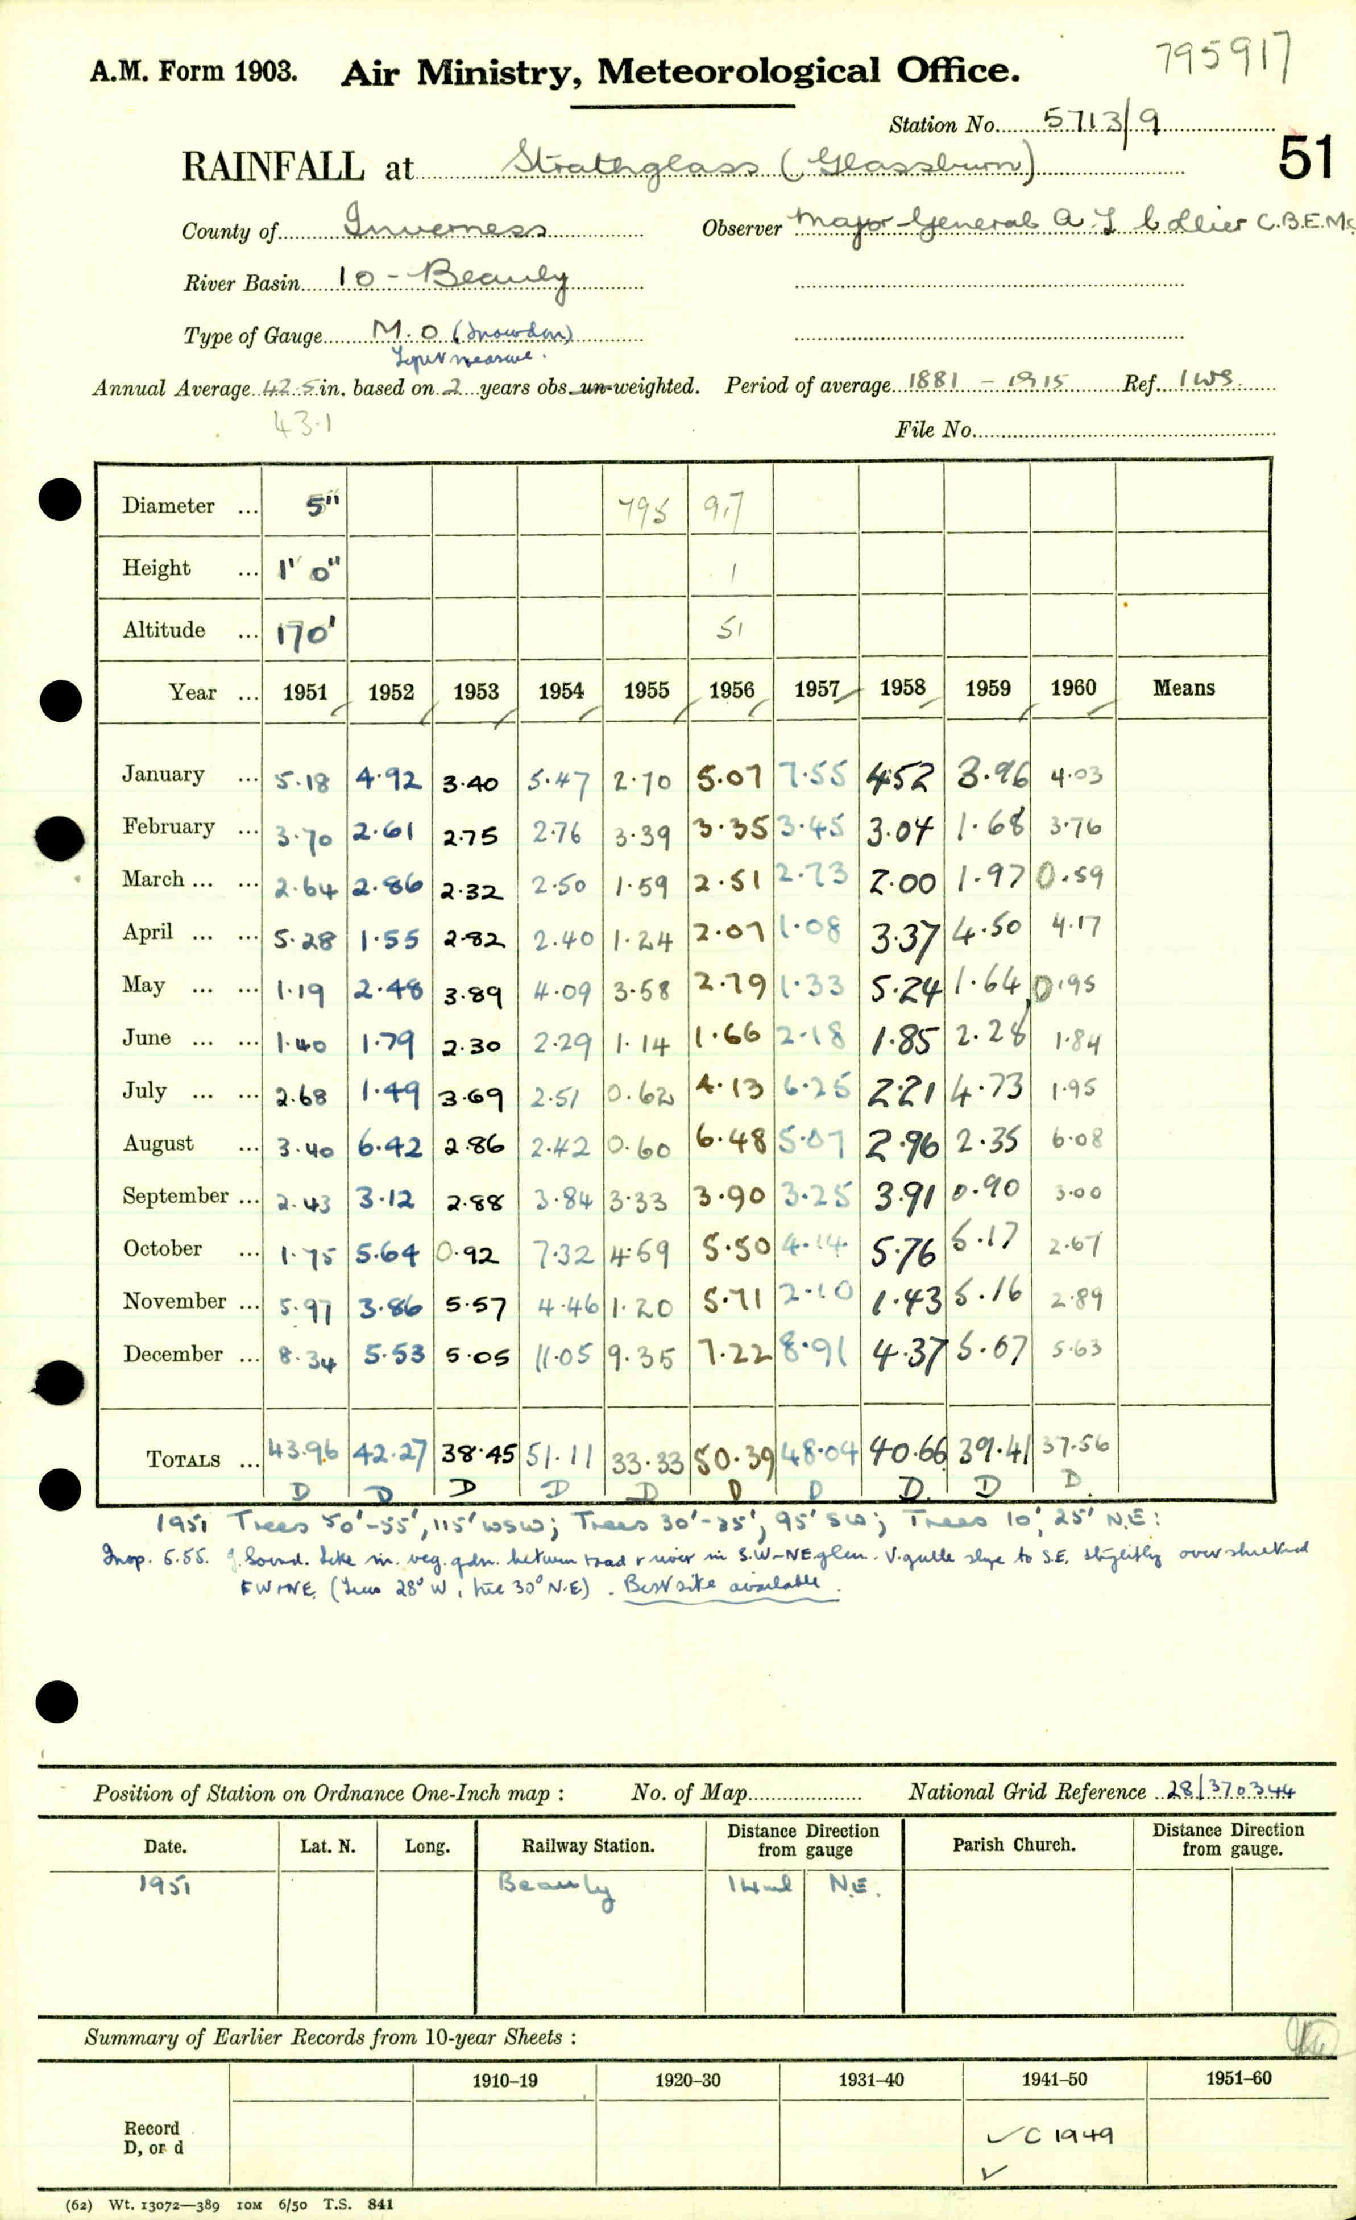 795917
A.M. Form 1903. Air Ministry, Meteorological Office.
Station No. 5713/9
51
RAINFALL at Strathglass (Glassburn)
County of Inverness Observer Major-General A. L Collier C.B.E. Mc
River Basin 10 - Beauly
Type of Gauge M.O (Snowdon)
Taper measure.
Annual Average 42.5 in. based on 2 years obs. un-weighted. Period of average 1881 - 1915 Ref. IWS.
43.1
File No.
Diameter ... 5" 795 917
Height ... 1' 0" 1
Altitude ... 170' 51
Year ... 1951 1952 1953 1954 1955 1956 1957 1958 1959 1960 Means
January ... 5.18 4.92 3.40 5.47 2.70 5.07 7.55 4.52 3.96 4.03
February ... 3.70 2.61 2.75 2.76 3.39 3.35 3.45 3.04 1.68 3.76
March ... ... 2.64 2.86 2.32 2.50 1.59 2.51 2.73 2.00 1.97 0.59
April ... ... 5.28 1.55 2.82 2.40 1.24 2.07 1.08 3.37 4.50 4.17
May ... ... 1.19 2.48 3.89 4.09 3.58 2.79 1.33 5.24 1.64 0.95
June ... ... 1.40 1.79 2.30 2.29 1.14 1.66 2.18 1.85 2.28 1.84
July ... ... 2.68 1.49 3.69 2.51 0.62 4.13 6.25 2.21 4.73 1.95
August ... 3.40 6.42 2.86 2.42 0.60 6.48 5.07 2.96 2.35 6.08
September ... 2.43 3.12 2.88 3.84 3.33 3.90 3.25 3.91 0.90 3.00
October ... 1.75 5.64 0.92 7.32 4.59 5.50 4.14 5.76 5.17 2.67
November ... 5.97 3.86 5.57 4.46 1.20 5.71 2.10 1.43 5.16 2.89
December ... 8.34 5.53 5.05 11.05 9.35 7.22 8.91 4.37 5.07 5.63
TOTALS ... 43.96 42.27 38.45 51.11 33.33 50.39 48.04 40.66 39.41 37.56
D D D D D D D D. D D.
1951 Trees 50'-55', 115' WSW; Trees 30'-35', 95' SW; Trees 10', 25' N.E:
Insp. 5.55. Sound. Site in veg. gdn. between road & river in S.W-NE glen. V. gentle slope to S.E. slightly over sheltered
F W & NE. (Trees 28° W, tree 30° N.E). Best site available.
Position of Station on Ordnance One-Inch map : No. of Map National Grid Reference 28/370344
Date. Lat. N. Long. Railway Station. Distance Direction from gauge Parish Church. Distance Direction from gauge.
1951 Beauly 14ml N.E.
Summary of Earlier Records from 10-year Sheets :
1910-19 1920-30 1931-40 1941-50 1951-60
Record
D, or d
✓ C 1949
✓
(62) Wt. 13072—389 10M 6/50 T.S. 841